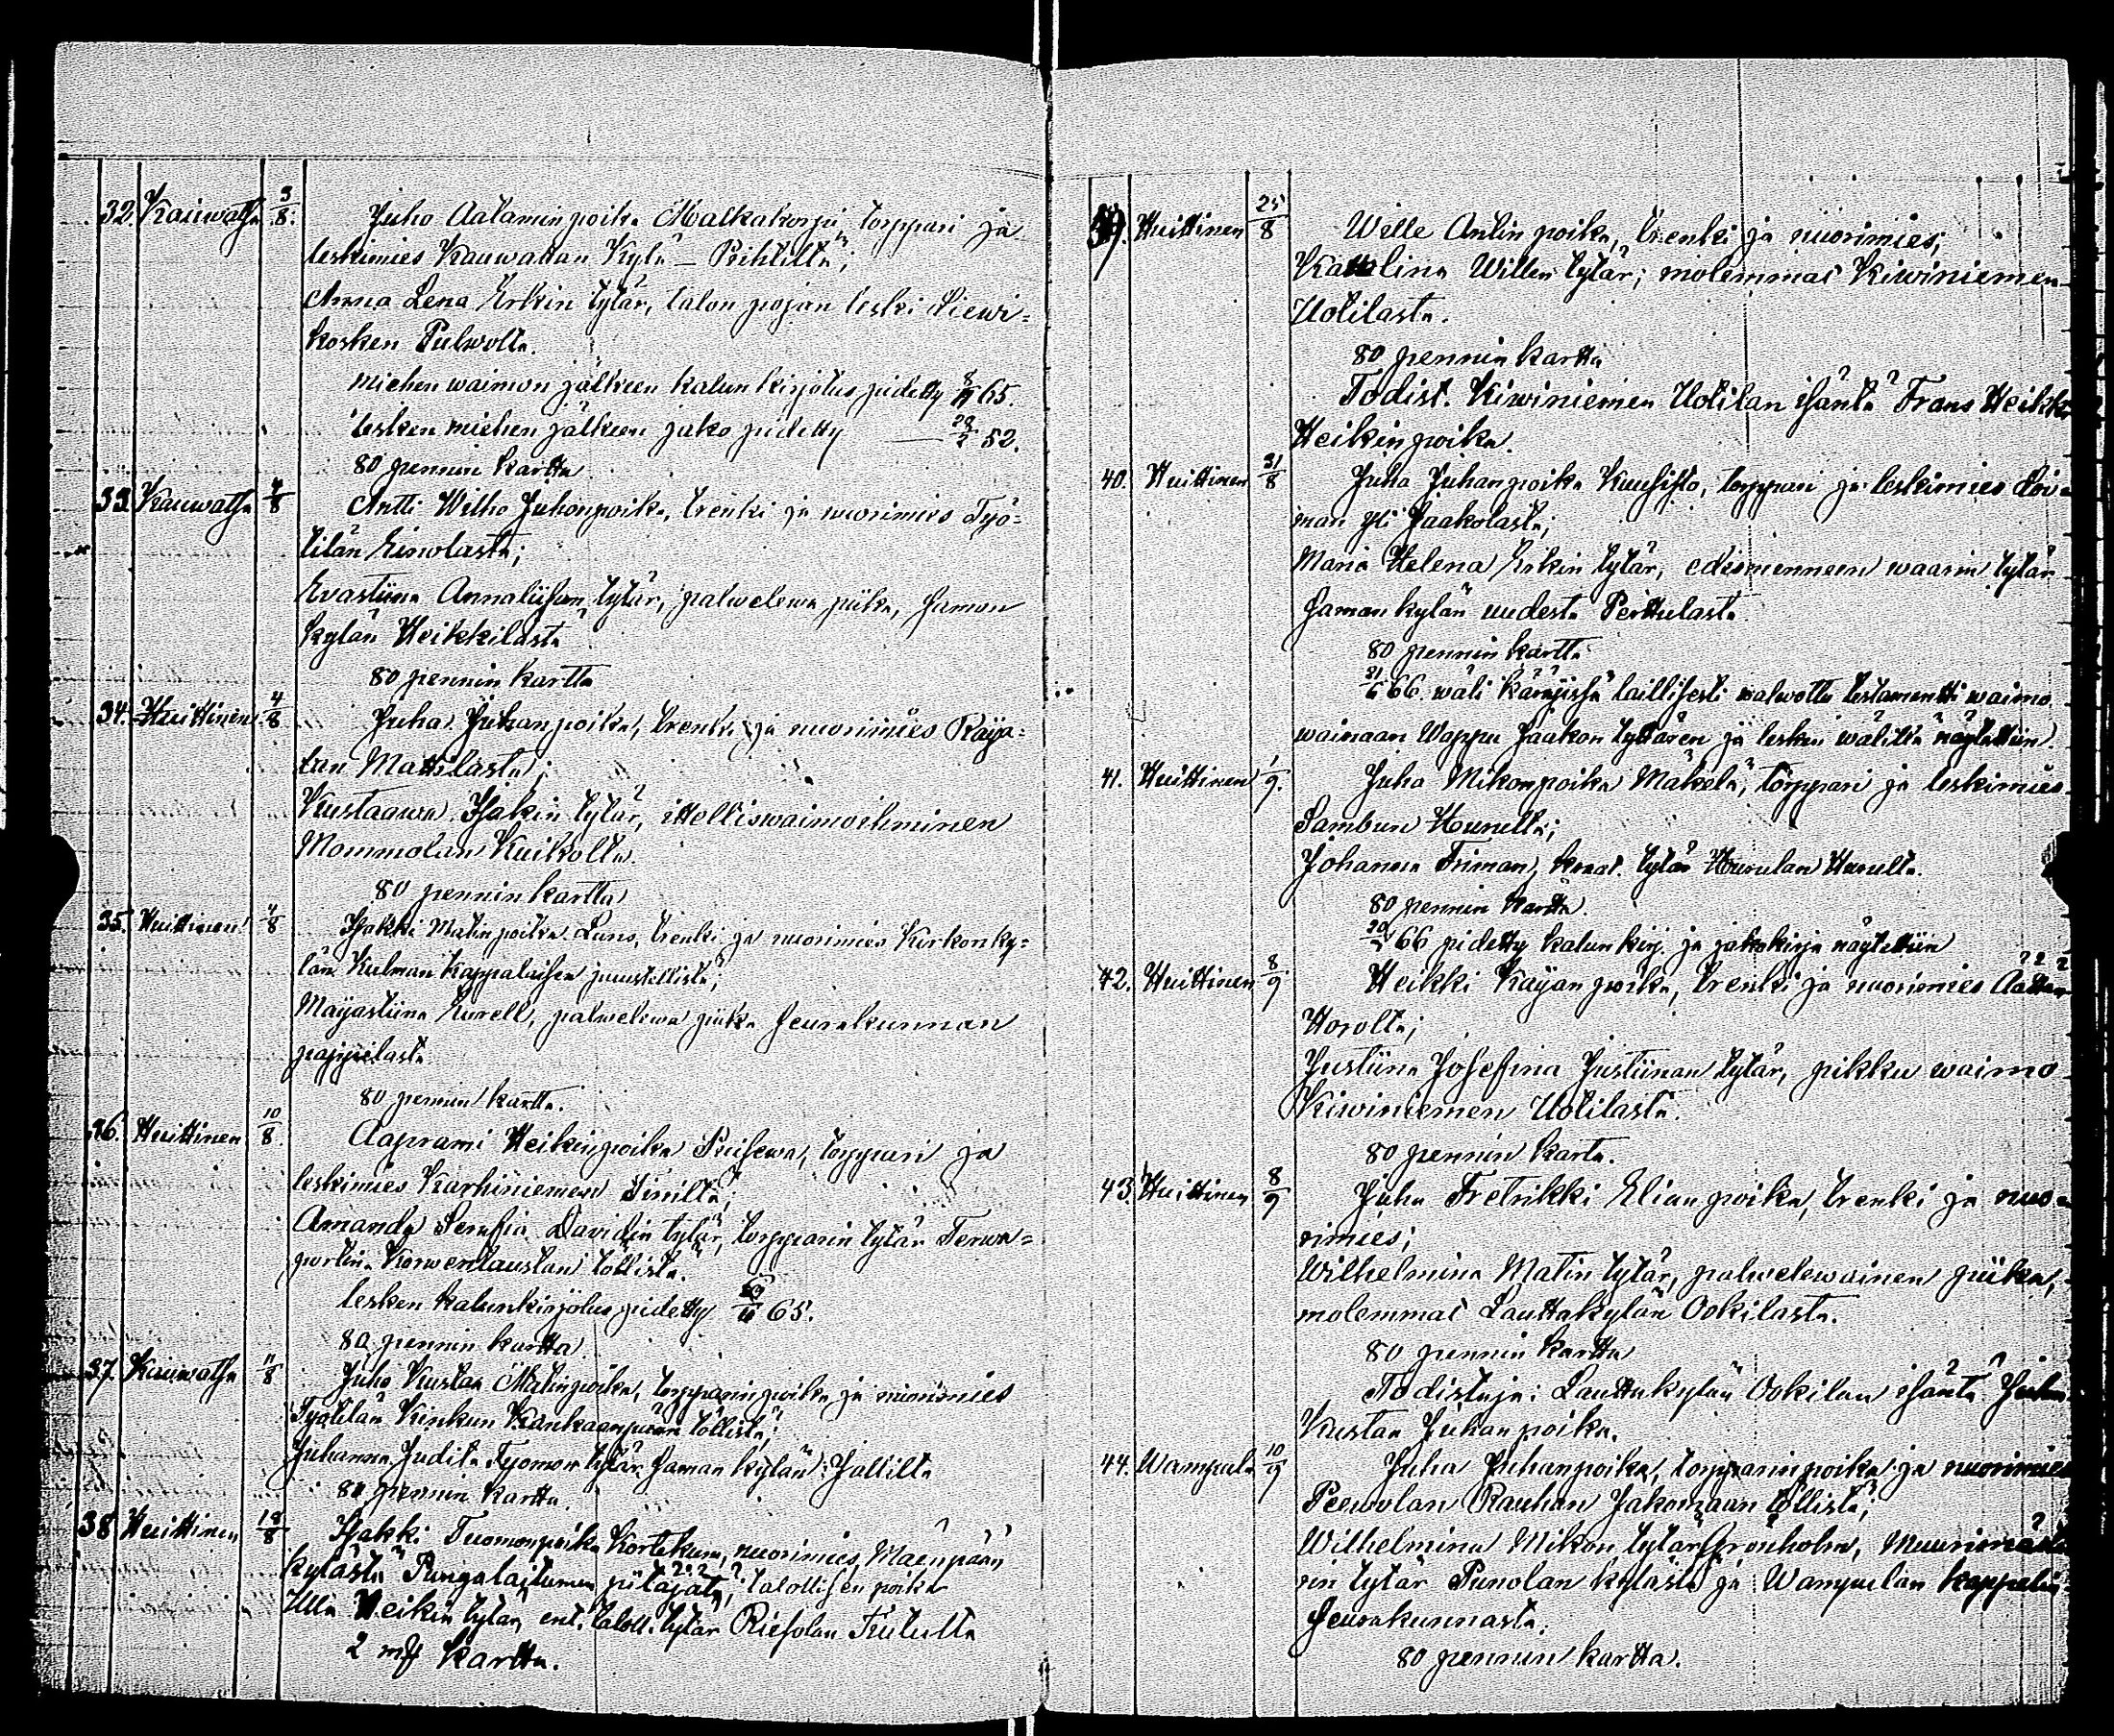 32. Kauwatsa 3/8. Juho Aatamin poika Malkakorpi, torppari ja
leskimies Kauwatsan Kylä-Prihtiltä;
Anna Lena Erkin tytär, talon pojan leski Siewi-
kosken Pulwolta.
miehen waimon jälkeen kalun kirjotus pidetty 65.
lesken miehen jälkeen jako pidetty — 52.
80 pennin kartta
33. Kauwatsa 4/8 Antti Wilho Juhonpoika, trenki ja nuorimies Tyo-
tilän Einolasta;
Evastiina Annaliisan tytär, palwelewa piika, saman
kylän Heikkilästä
80 pennin kartta
34. Huittinen 4/8 Juha Juhanpoika, trenki ja nuorimies Raija-
lan Mattilasta;
Kustaawa Isakin tytär, itellisvaimoihminen
Mommolan Kuikolta.
80 pennin kartta
35. Huittinen 4/8 Isakki Matinpoika Luns, trenki ja nuorimies Kirkonky-
län Kulman kappalaisen puustellista;
Maijastiina Eurell, palwelewa piika seurakunnan
pappilasta
80 pennin kartta.
36. Huittinen 10/8. Aaprami Heikinpoika, torppari ja
leskimies Karhiniemen
Amanda Serafia Davidin tytär, torpparin tytär Ferwa-
portin Korwenlaustan töllistä.
lesken kalunkirjotus pidetty 65.
80 pennin kartta
37. Kauwatsa 11/8 Juho Kustaa Matinpoika, torpparinpoika ja nuorimies
Tyotilän Kinkun Kankaanpään töllistä;
Juhanna Judita Tyomon tytär saman kylän Jallilta
80 pennin kartta.
38 Huittinen 18/8 Isakki Tuomonpoika Kortekum, nuorimies, Mäenpään
kylästä Pungalaitumen pitäjätä, talollisen poika
Ulla Heikin tytär, ent. taloll. tytär Riesolan
2 mk kartta.
39. Huittinen 25/8 Wille Antin poika, trenki ja nuorimies;
Katalina Willen tytär; molemmat Kiwiniemen
Uotilasta.
80 pennin kartta
Todist. Kiwiniemen Uotilan isäntä Frans Heikki
Heikinpoika.
40. Huittinen 31/8 Juha Juhanpoika Kuusisto, torppari ja leskimies Loi-
man yli Jaakolasta;
Maria Helena Erkin tytär, edesmenneen waarin tytär
saman kylän uudesta Perttulasta
80 pennin kartta
21/6 66. wäli käräjissä laillisesti walwottu testamentti waimo
wainaan Wappu Jaakon tyttären ja lesken wälillä näytettiin.
41. Huittinen 1/9. Juha Mikonpoika Mäkelä, torppari ja leskimies
Sambun Hurulta;
Johanna Friman, tytär Hurulan Hurulta.
80 pennin kartta.
66 pidetty kalunkirj. ja jakokirja näytettiin
42. Huittinen 8/9 Heikki Kaijanpoika, trenki ja nuorimies
Horolta;
Justiina Josefina Justiinan tytär, pikku waimo
Kiwiniemen Uotilasta.
80 pennin karta.
43. Huittinen 8/9 Juha Fretrikki Elianpoika, trenki ja nuo-
rimies;
Wilhelmina Matin tytär, palwelewainen piika,
molemmat Lauttakylän Ookilasta.
80 pennin kartta
Todistaja: Lauttakylän Ookilan isäntä Juha
Kustaa Juhanpoika.
44. Wampula 10/9 Juha Juhanpoika, torpparinpoika ja nuorimies
Peewolan Rauhan Jakomaan töllistä;
Wilhelmina Mikon tytär Grönholm, Muurimesta-
rin tytär Punolan kylästä ja Wampulan kappeli-
seurakunnasta.
80 pennin kartta.